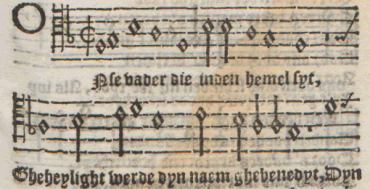 ONse vader die inden hemel syt,
Gheheylight werde dyn naem ghebenedyt, Dyn